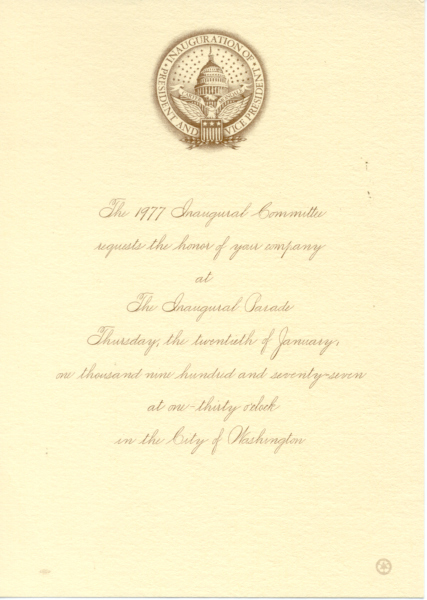 INAUGURATION OF
PRESIDENT AND VICE PRESIDENT
The 1977 Inaugural Committee
requests the honor of your company
at
The Inaugural Parade
Thursday, the twentieth of January,
one thousand nine hundred and seventy-seven
at one-thirty o'clock
in the City of Washington